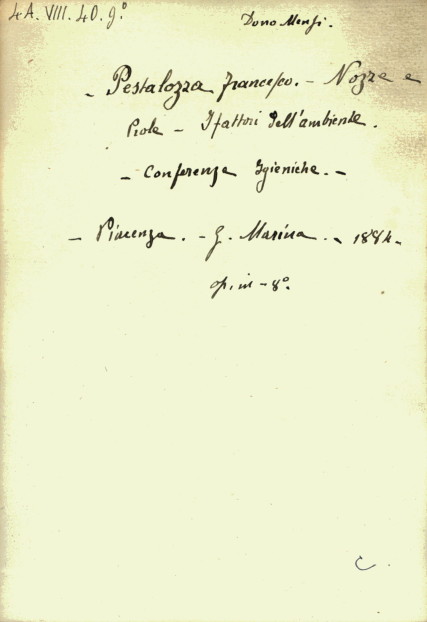 4A. VIII. 40. 9.°
Dono Mensi.
- Pestalozza Francesco. - Nozze e
Prole - I fattori dell'ambiente.
- Conferenze Igieniche. -
- Piacenza. - G. Marina. - 1884.
op. in - 8°.
C.